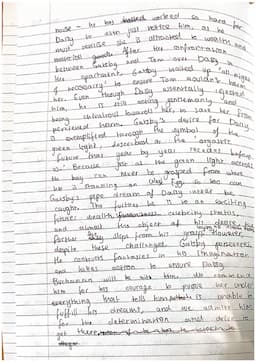 house - he has worked so hard for
Daisy to also just notice him, as he
must realise she is attracted to wealth and
material goods. After the confrontation
between Gatsby and Tom over Daisy in
the apartment, Gatsby waited up all night
if necessary' to ensure Tom wouldn't harm
him. Even though Daisy essentially rejected
him, he is still being gentlemanly and
being chivalrous towards her, to save her from
perceived harm. Gatsby's desire for Daisy
is exemplified through the symbol of the
green light, described as the 'orgastic
future that year by year recedes before
us.' Because just as the green light across
the bay can never be grasped from where
he is standing on West Egg, so too can
Gatsby's pipe dream of Daisy never be
caught. The further he is to an exciting
future wealth, celebrity status,
and almost his object of his desire,
further slips from his grasp. However,
despite these challenges, Gatsby perseveres.
He continues fantasies in his imagination
and takes action to ensure Daisy
Buchannan will be with him. We commend
him for his courage to prove her under
everything that tells him he is unable to
fulfill his dreams, and we admire him
for the determination and desire to
get there